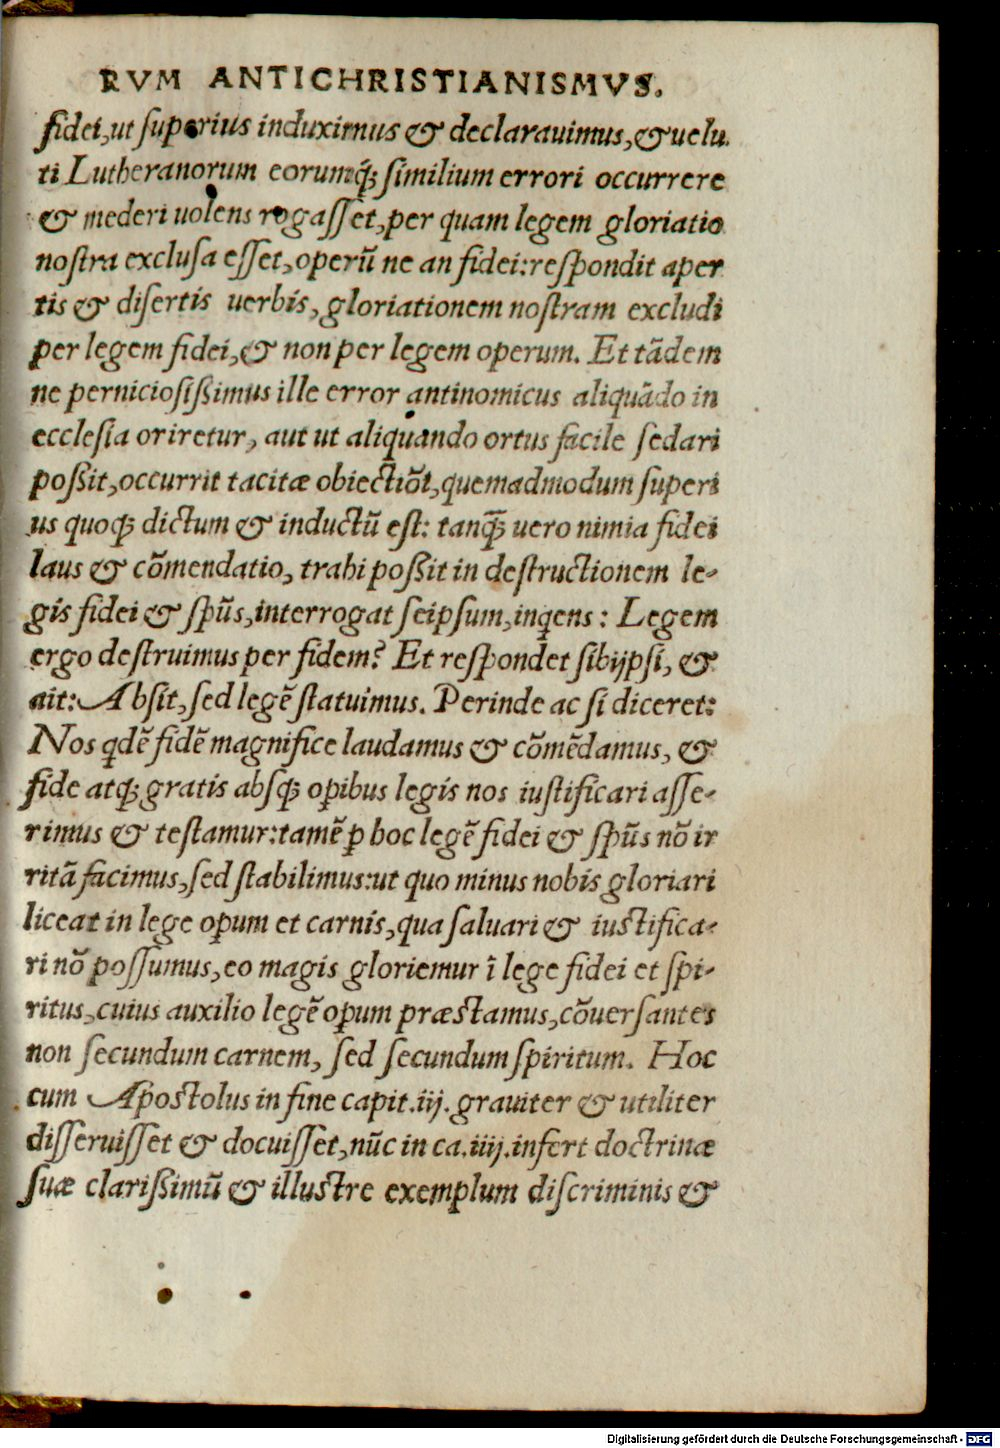 RVM ANTICHRISTIANISMVS.
fidei,ut ſuperius induximus & declarauimus,& uelu
ti Lutheranorum eorumq́; ſimilium errori occurrere
& mederi uolens rogaſſet,per quam legem gloriatio
noſtra excluſa eſſet,operũ ne an fidei:reſpondit aper
tis & diſertis uerbis,gloriationem noſtram excludi
per legem fidei,& non per legem operum. Et tãdem
ne pernicioſißimus ille error antinomicus aliquãdo in
eccleſia oriretur, aut ut aliquando ortus facile ſedari
poßit,occurrit tacitæ obiectiõi,quemadmodum ſuperi
us quoq; dictum & inductũ eſt: tanq̃ uero nimia fidei
laus & cõmendatio, trahi poßit in deſtructionem le-
gis fidei & ſpũs,interrogat ſeipſum,inqens : Legem
ergo deſtruimus per fidem? Et reſpondet ſibijpſi, &
ait: Abſit,ſed legẽ ſtatuimus. Perinde ac ſi diceret:
Nos qdẽ fidẽ magnifice laudamus & cõmẽdamus, &
fide atq; gratis abſq; oꝑibus legis nos iuſtificari aſſe-
rimus & teſtamur:tamẽ ꝑ hoc legẽ fidei & ſpũs nõ ir
ritã facimus,ſed ſtabilimus:ut quo minus nobis gloriari
liceat in lege oꝑum et carnis,qua ſaluari & iuſtifica-
ri nõ poſſumus,eo magis gloriemur ĩ lege fidei et ſpi-
ritus,cuius auxilio legẽ oꝑum præſtamus,cõuerſantes
non ſecundum carnem, ſed ſecundum ſpiritum. Hoc
cum Apoſtolus in fine capit.iij. grauiter & utiliter
diſſeruiſſet & docuiſſet,nũc in ca.iiij.infert doctrinæ
ſuæ clarißimũ & illuſtre exemplum diſcriminis &
Digitalisierung gefördert durch die Deutsche Forschungsgemeinschaft - DFG